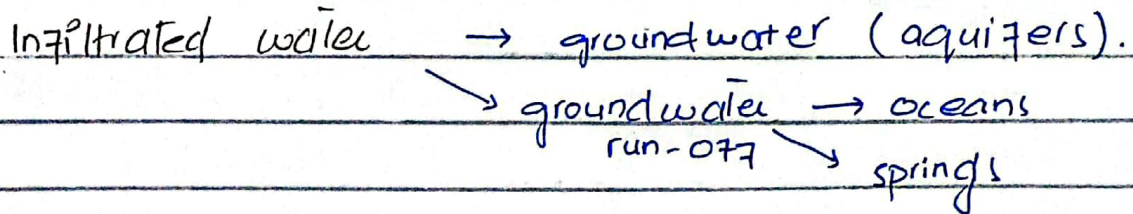 Infiltrated water → groundwater (aquifers).
groundwater → oceans
run-off
springs